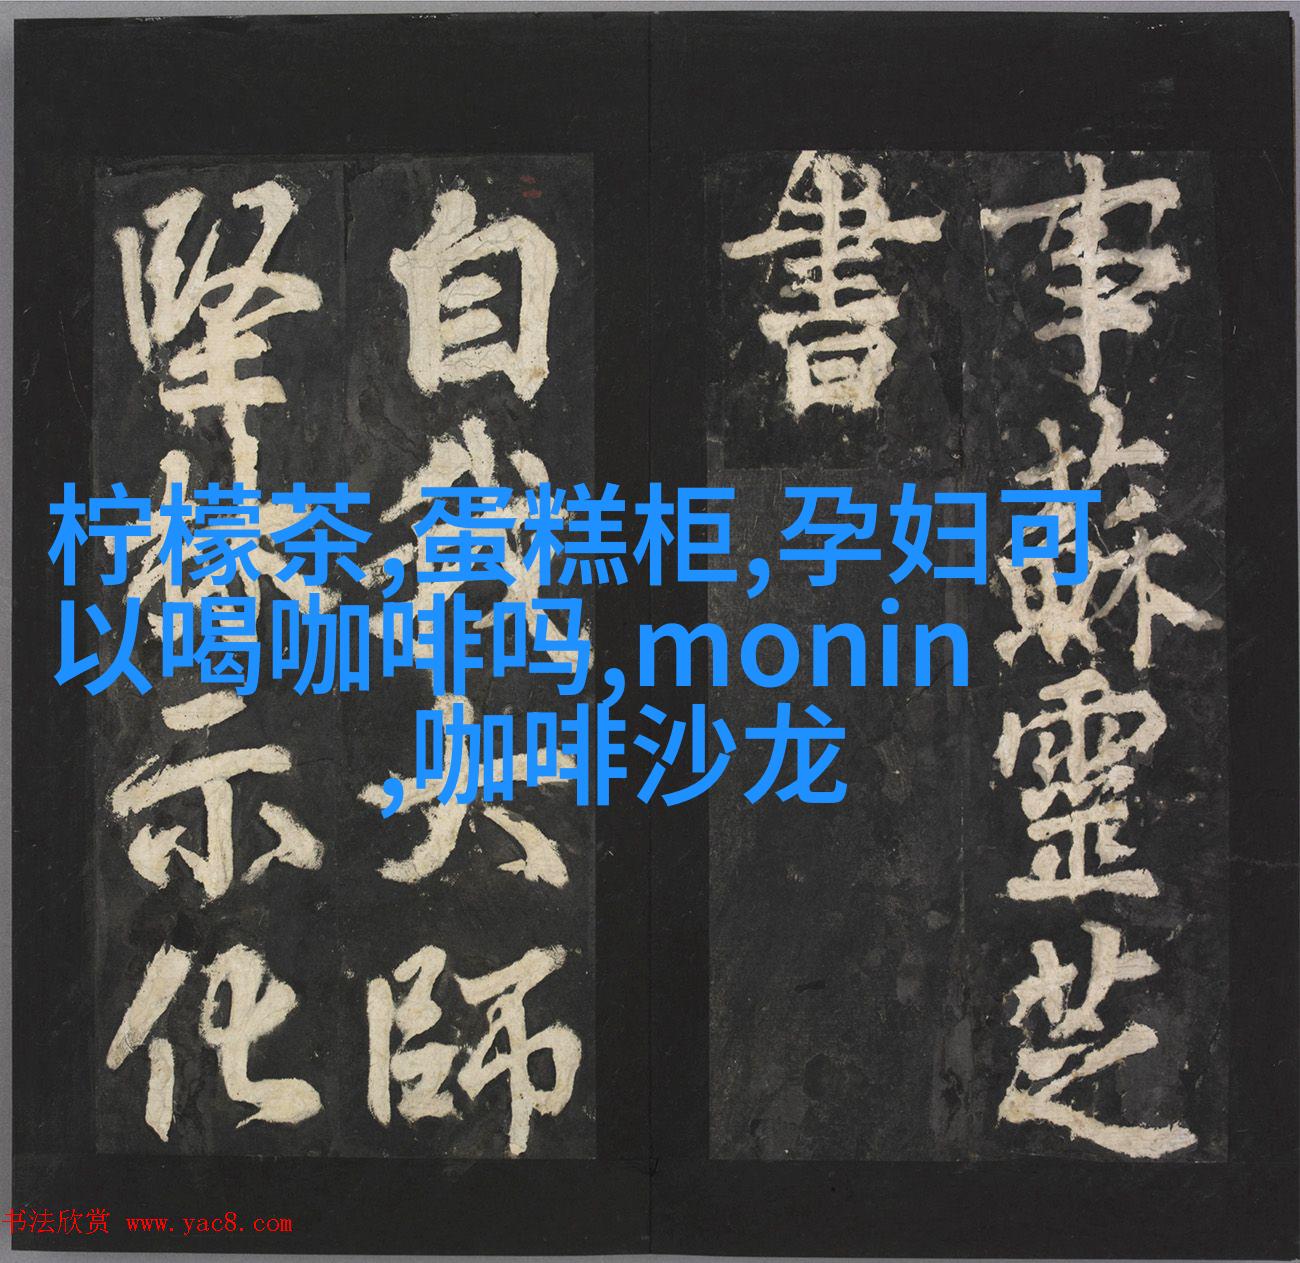 事蘇靈芝
書
自我大師
堅林示化
柠檬茶,蛋糕柜,孕妇可
以喝咖啡吗,monin
,咖啡沙龙
书法欣赏 www.yac8.com